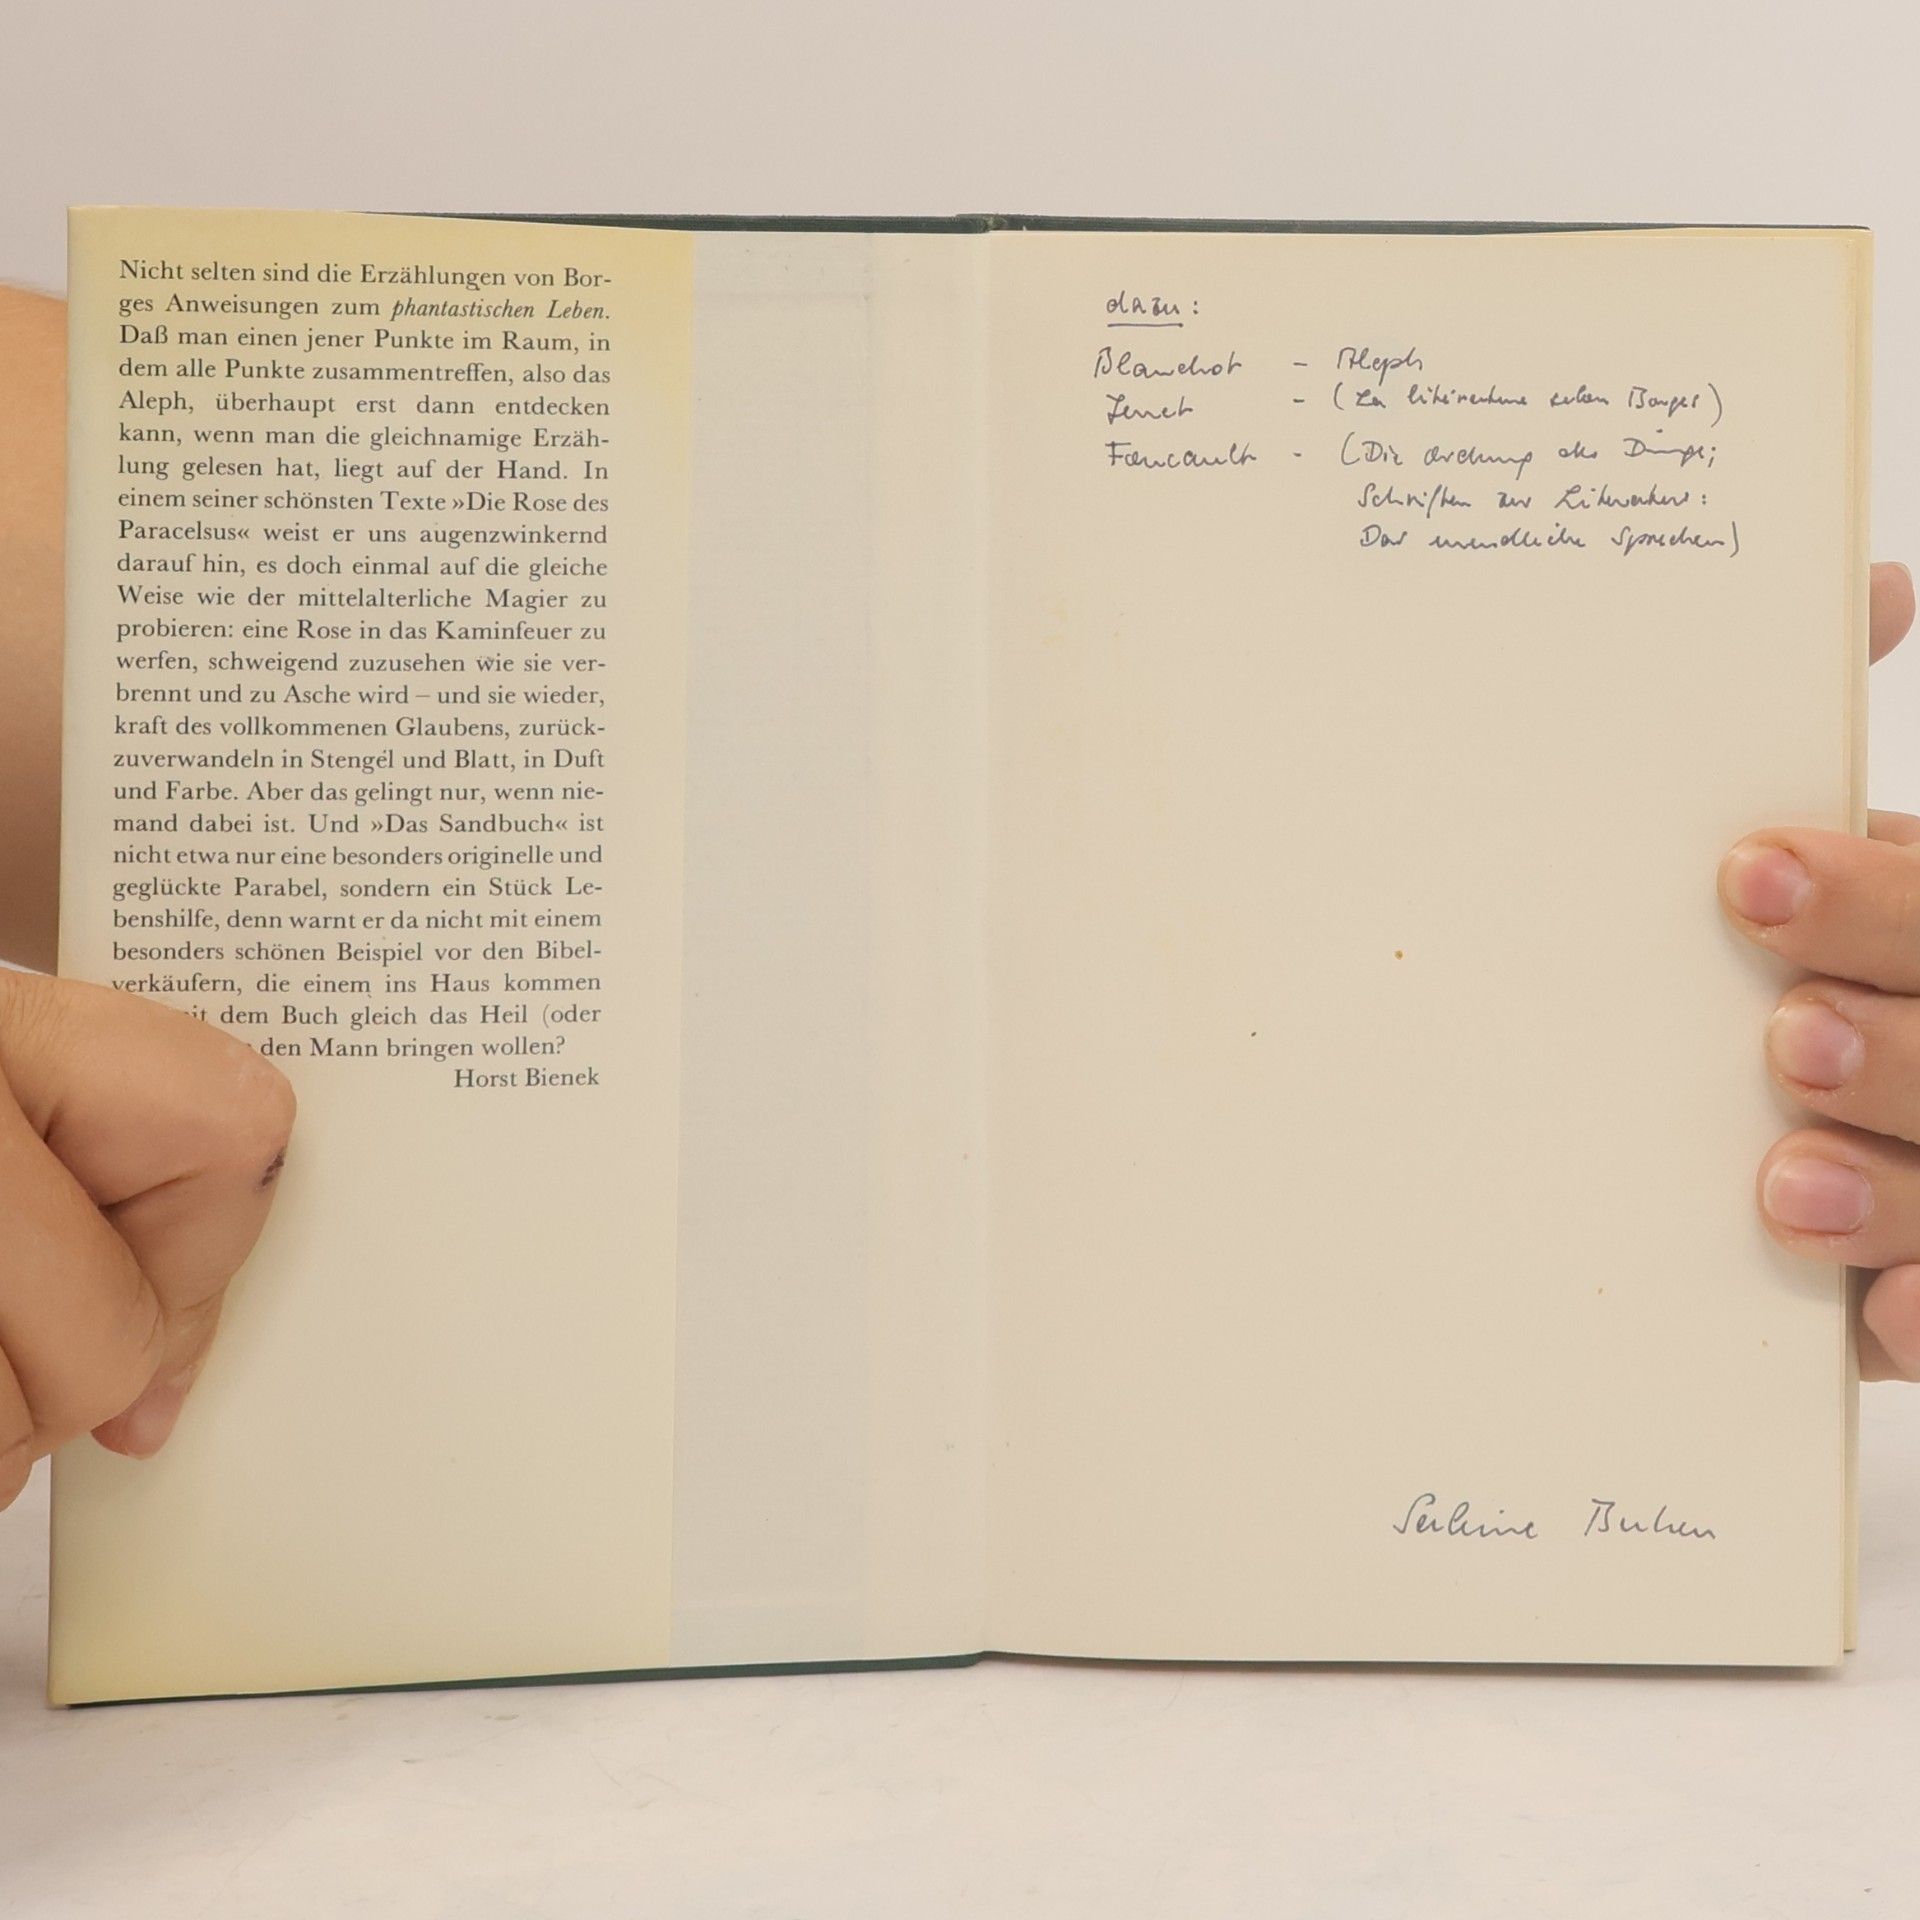 Nicht selten sind die Erzählungen von Bor-
ges Anweisungen zum phantastischen Leben.
Daß man einen jener Punkte im Raum, in
dem alle Punkte zusammentreffen, also das
Aleph, überhaupt erst dann entdecken
kann, wenn man die gleichnamige Erzäh-
lung gelesen hat, liegt auf der Hand. In
einem seiner schönsten Texte »Die Rose des
Paracelsus« weist er uns augenzwinkernd
darauf hin, es doch einmal auf die gleiche
Weise wie der mittelalterliche Magier zu
probieren: eine Rose in das Kaminfeuer zu
werfen, schweigend zuzusehen wie sie ver-
brennt und zu Asche wird – und sie wieder,
kraft des vollkommenen Glaubens, zurück-
zuverwandeln in Stengel und Blatt, in Duft
und Farbe. Aber das gelingt nur, wenn nie-
mand dabei ist. Und »Das Sandbuch« ist
nicht etwa nur eine besonders originelle und
geglückte Parabel, sondern ein Stück Le-
benshilfe, denn warnt er da nicht mit einem
besonders schönen Beispiel vor den Bibel-
verkäufern, die einem ins Haus kommen
dem Buch gleich das Heil (oder
den Mann bringen wollen?
Horst Bienek
dazu:
Blanchot - Aleph
- (La littérature selon Borges)
Foucault - (Die Ordnung der Dinge;
Schriften zur Literatur:
Das unendliche Sprechen)
Sabine